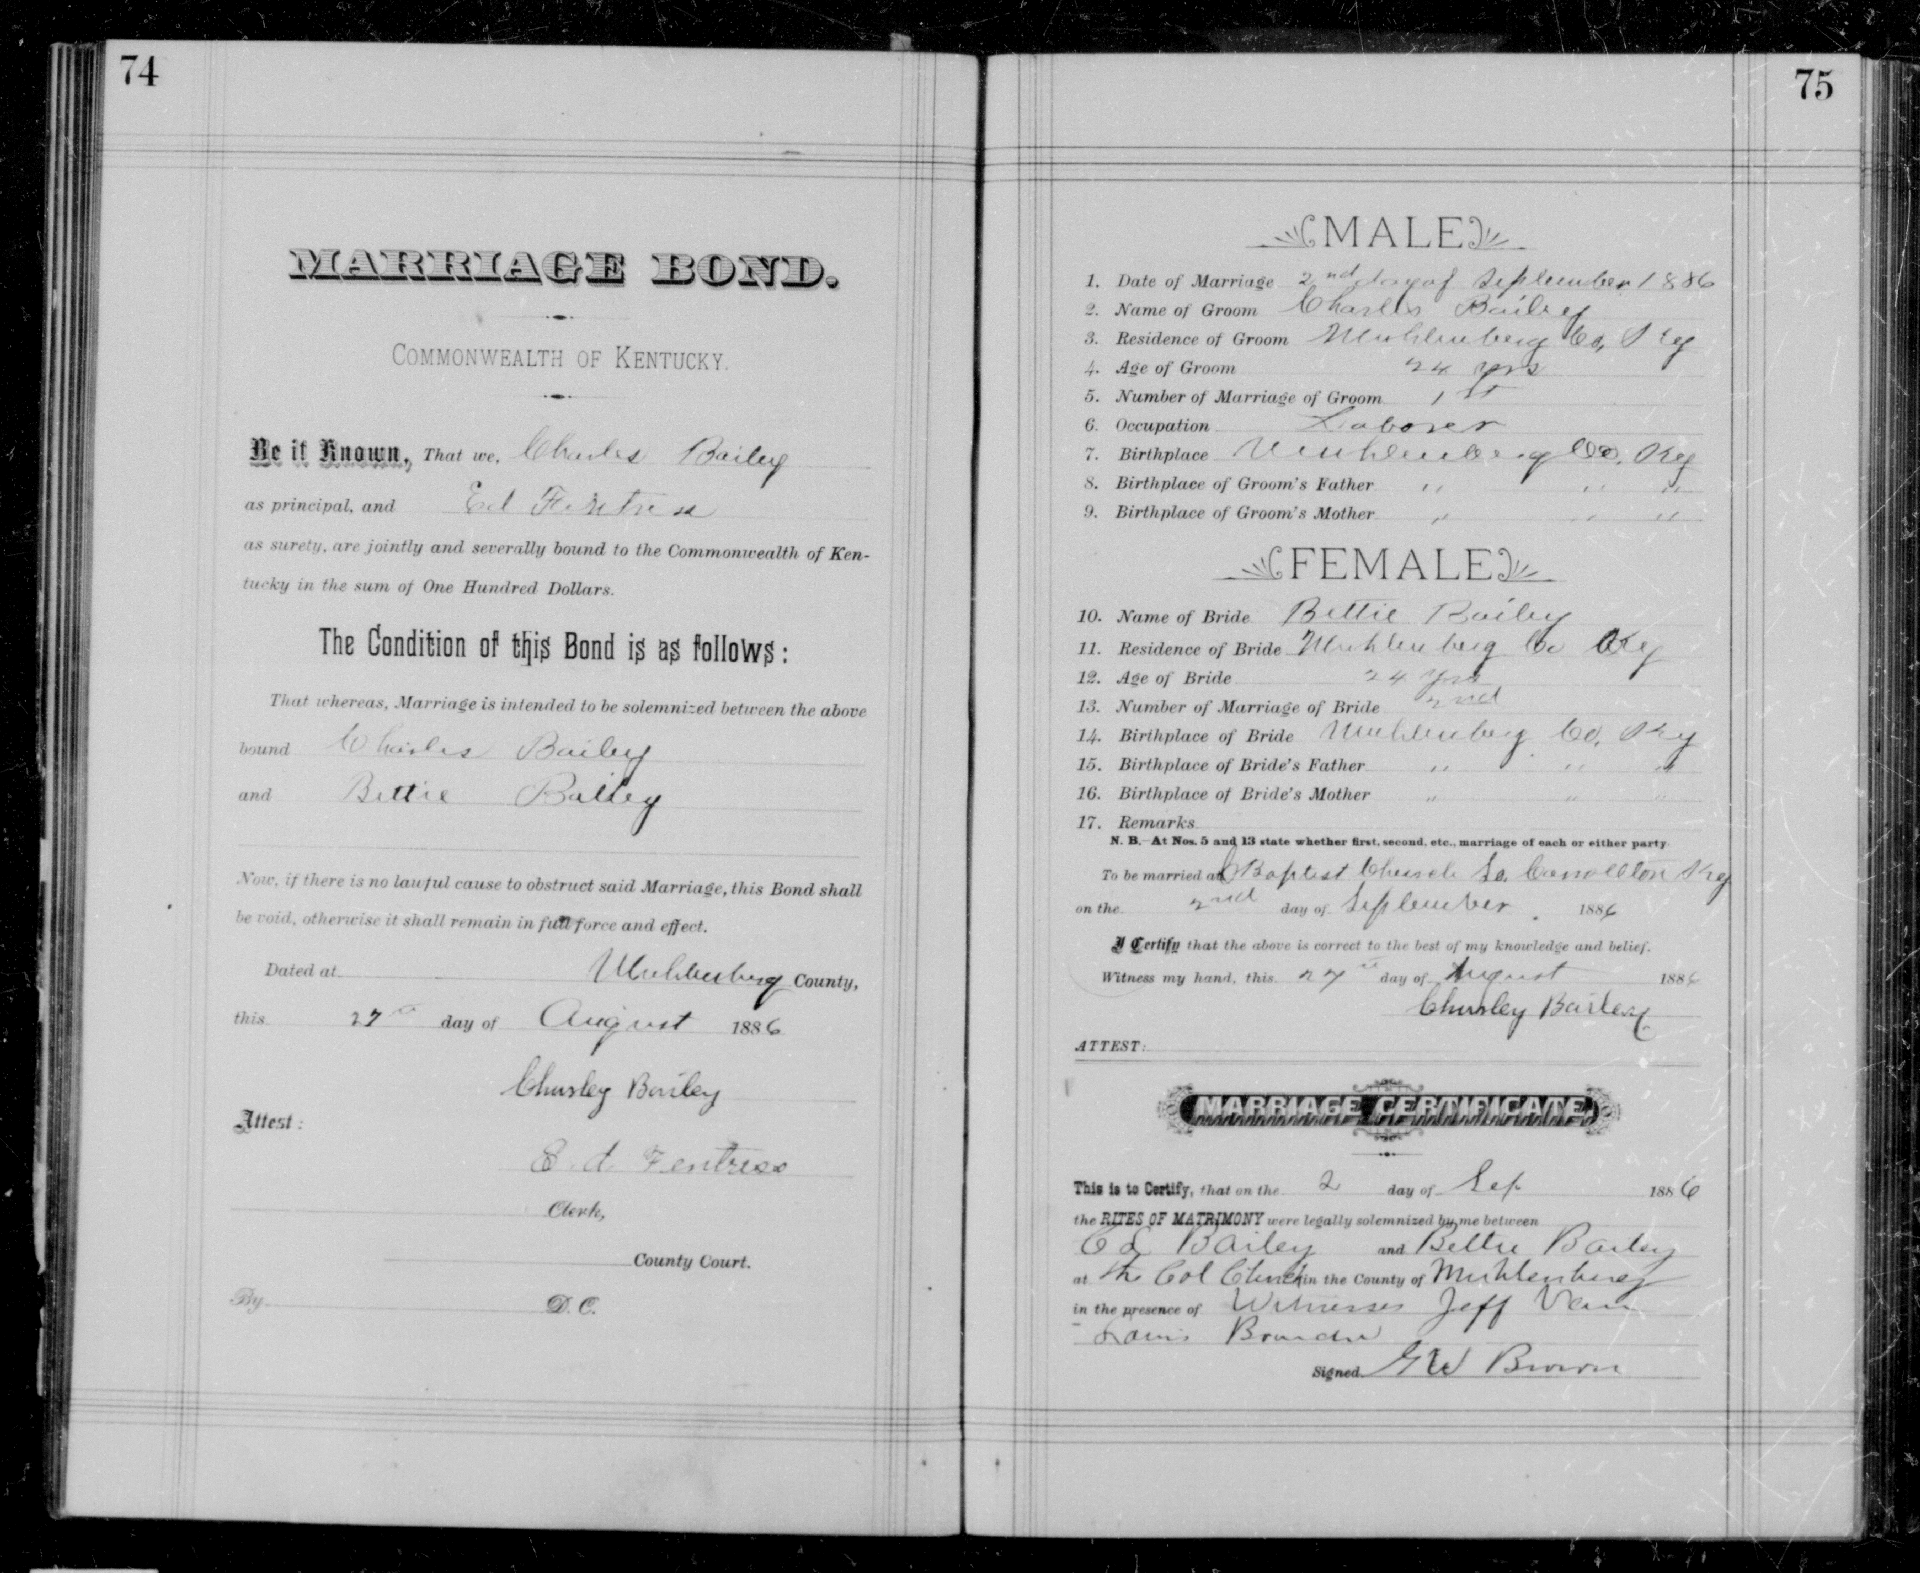 74
MARRIAGE BOND.
COMMONWEALTH OF KENTUCKY.
Be it Known, That we, Charles Bailey
as principal, and Ed Fentress
as surety, are jointly and severally bound to the Commonwealth of Ken-
tucky in the sum of One Hundred Dollars.
The Condition of this Bond is as follows:
That whereas, Marriage is intended to be solemnized between the above
bound Charles Bailey
and Bettie Bailey
Now, if there is no lawful cause to obstruct said Marriage, this Bond shall
be void, otherwise it shall remain in full force and effect.
Dated at Muhlenberg County,
this 27 day of August 1886
Chursley Bailey
Attest:
Ed Fentress
Clerk,
County Court.
By D. C.
75
MALE
1. Date of Marriage 2nd day of September 1886
2. Name of Groom Charles Bailey
3. Residence of Groom Muhlenberg Co, Ky
4. Age of Groom 24 yrs
5. Number of Marriage of Groom 1st
6. Occupation Laborer
7. Birthplace Muhlenberg Co, Ky
8. Birthplace of Groom's Father " " "
9. Birthplace of Groom's Mother " " "
FEMALE
10. Name of Bride Bettie Bailey
11. Residence of Bride Muhlenberg Co Ky
12. Age of Bride 24 yrs
13. Number of Marriage of Bride 2nd
14. Birthplace of Bride Muhlenberg Co, Ky
15. Birthplace of Bride's Father " " "
16. Birthplace of Bride's Mother " " "
17. Remarks
N. B.—At Nos. 5 and 13 state whether first, second, etc., marriage of each or either party
To be married at Baptist Church So. Carrollton Ky
on the 2nd day of September. 1886
I Certify that the above is correct to the best of my knowledge and belief.
Witness my hand, this 27 day of August 1886
Chursley Bailey
ATTEST:
MARRIAGE CERTIFICATE
This is to Certify, that on the 2 day of Sep 1886
the RITES OF MATRIMONY were legally solemnized by me between
Bailey and Bettie Bailey
at the Col Church in the County of Muhlenberg
in the presence of Witnesses Jeff
Louis
Signed GW Brown